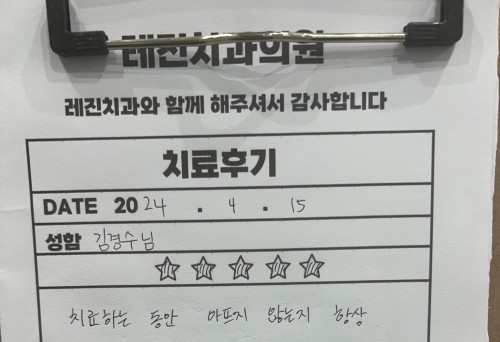 레진치과의원
레진치과와 함께 해주셔서 감사합니다
치료후기
DATE 2024 . 4 . 15
성함 김경수님
치료하는 동안 아프지 않는지 항상